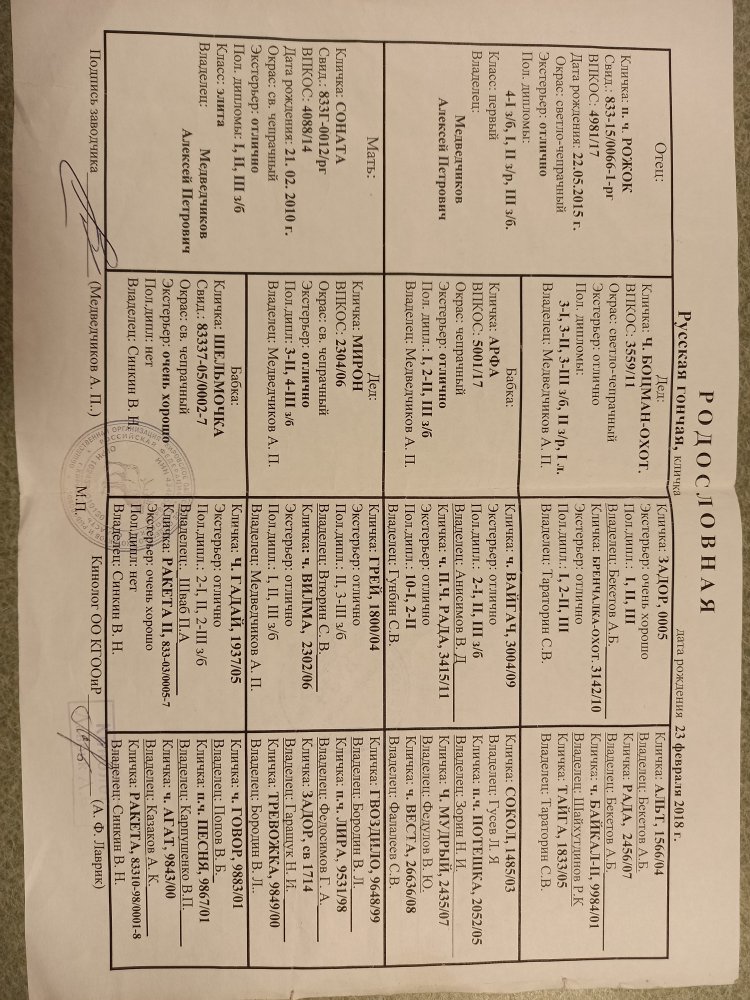 РОДОСЛОВНАЯ
Русская гончая, кличка дата рождения 23 февраля 2018 г.
Отец:
Кличка: п. ч. РОЖОК
Свид.: 833-15/0066-1-рг
ВПКОС: 4981/17
Дата рождения: 22.05.2015 г.
Окрас: светло-чепрачный
Экстерьер: отлично
Пол. дипломы:
4-I з/б, I, II з/р, III з/б.
Класс: первый
Владелец:
Медведчиков
Алексей Петрович
Мать:
Кличка: СОНАТА
Свид.: 833Г-0012/рг
ВПКОС: 4088/14
Дата рождения: 21. 02. 2010 г.
Окрас: св. чепрачный
Экстерьер: отлично
Пол. дипломы: I, II, III з/б
Класс: элита
Владелец: Медведчиков
Алексей Петрович
Дед:
Кличка: Ч. БОЦМАН-ОХОТ.
ВПКОС: 3559/11
Окрас: светло-чепрачный
Экстерьер: отлично
Пол. дипломы:
3-I, 3-II, 3-III з/б, II з/р, I л.
Владелец: Медведчиков А. П.
Бабка:
Кличка: АРФА
ВПКОС: 5001/17
Окрас: чепрачный
Экстерьер: отлично
Пол. дипл.: I, 2-II, III з/б
Владелец: Медведчиков А. П.
Дед:
Кличка: МИРОН
ВПКОС: 2304/06
Окрас: св. чепрачный
Экстерьер: отлично
Пол.дипл: 3-II, 4-III з/б
Владелец: Медведчиков А. П.
Бабка:
Кличка: ШЕЛЬМОЧКА
Свид.: 83337-05/0002-7
Окрас: св. чепрачный
Экстерьер: очень хорошо
Пол.дипл: нет
Владелец: Синкин В. Н.
Кличка: ЗАДОР, 0005
Экстерьер: очень хорошо
Пол.дипл.: I, II, III
Владелец: Бекетов А.Б.
Кличка: БРЕНЧАЛКА-ОХОТ. 3142/10
Экстерьер: отлично
Пол.дипл.: I, 2-II, III
Владелец: Тараторин С.В.
Кличка: ч. ВАЙГАЧ, 3004/09
Экстерьер: отлично
Пол.дипл.: 2-I, II, III з/б
Владелец: Анисимов В. Д
Кличка: ч. П.Ч. РАДА, 3415/11
Экстерьер: отлично
Пол.дипл.: 10-I, 2-II
Владелец: Гунбин С.В.
Кличка: ГРЕЙ, 1800/04
Экстерьер: отлично
Пол.дипл.: II, 3-III з/б
Владелец: Вьюрин С. В.
Кличка: ч. ВИЛМА, 2302/06
Экстерьер: отлично
Пол.дипл.: I, II, III з/б
Владелец: Медведчиков А. П.
Кличка: Ч. ГАДАЙ, 1937/05
Экстерьер: отлично
Пол.дипл.: 2-I, II, 2-III з/б
Владелец: Шваб П.А
Кличка: РАКЕТА II, 833-03/0005-7
Экстерьер: очень хорошо
Пол.дипл: нет
Владелец: Синкин В. Н.
Кличка: АЛЬТ, 1566/04
Владелец: Бекетов А.Б.
Кличка: РАДА, 2456/07
Владелец: Бекетов А.Б
Кличка: ч. БАЙКАЛ-II, 9984/01
Владелец: Шайхутдинов Р.К
Кличка: ТАЙГА, 1833/05
Владелец: Тараторин С.В.
Кличка: СОКОЛ, 1485/03
Владелец: Гусев Л. Я
Кличка: п.ч. ПОТЕШКА, 2052/05
Владелец: Зорин Н. И.
Кличка: Ч. МУДРЫЙ, 2435/07
Владелец: Федулов В. Ю.
Кличка: ч. ВЕСТА, 26636/08
Владелец: Фалалеев С.В.
Кличка: ГВОЗДИЛО, 9648/99
Владелец: Бородин В. Л.
Кличка: п.ч. ЛИРА, 9531/98
Владелец: Федосимов Г. А.
Кличка: ЗАДОР, св 1714
Владелец: Гаращук Н. И.
Кличка: ТРЕВОЖКА, 9849/00
Владелец: Бородин В. Л..
Кличка: ч. ГОВОР, 9883/01
Владелец: Попов В. Б.
Кличка: п.ч. ПЕСНЯ, 9867/01
Владелец: Карпушенко В.П.
Кличка: ч. АГАТ, 9843/00
Владелец: Казаков А. К.
Кличка: РАКЕТА, 83310-98/0001-8
Владелец: Синкин В. Н.
Подпись заводчика (Медведчиков А. П..) М.П. Кинолог ОО КГООиР (А. Ф. Лаврик)